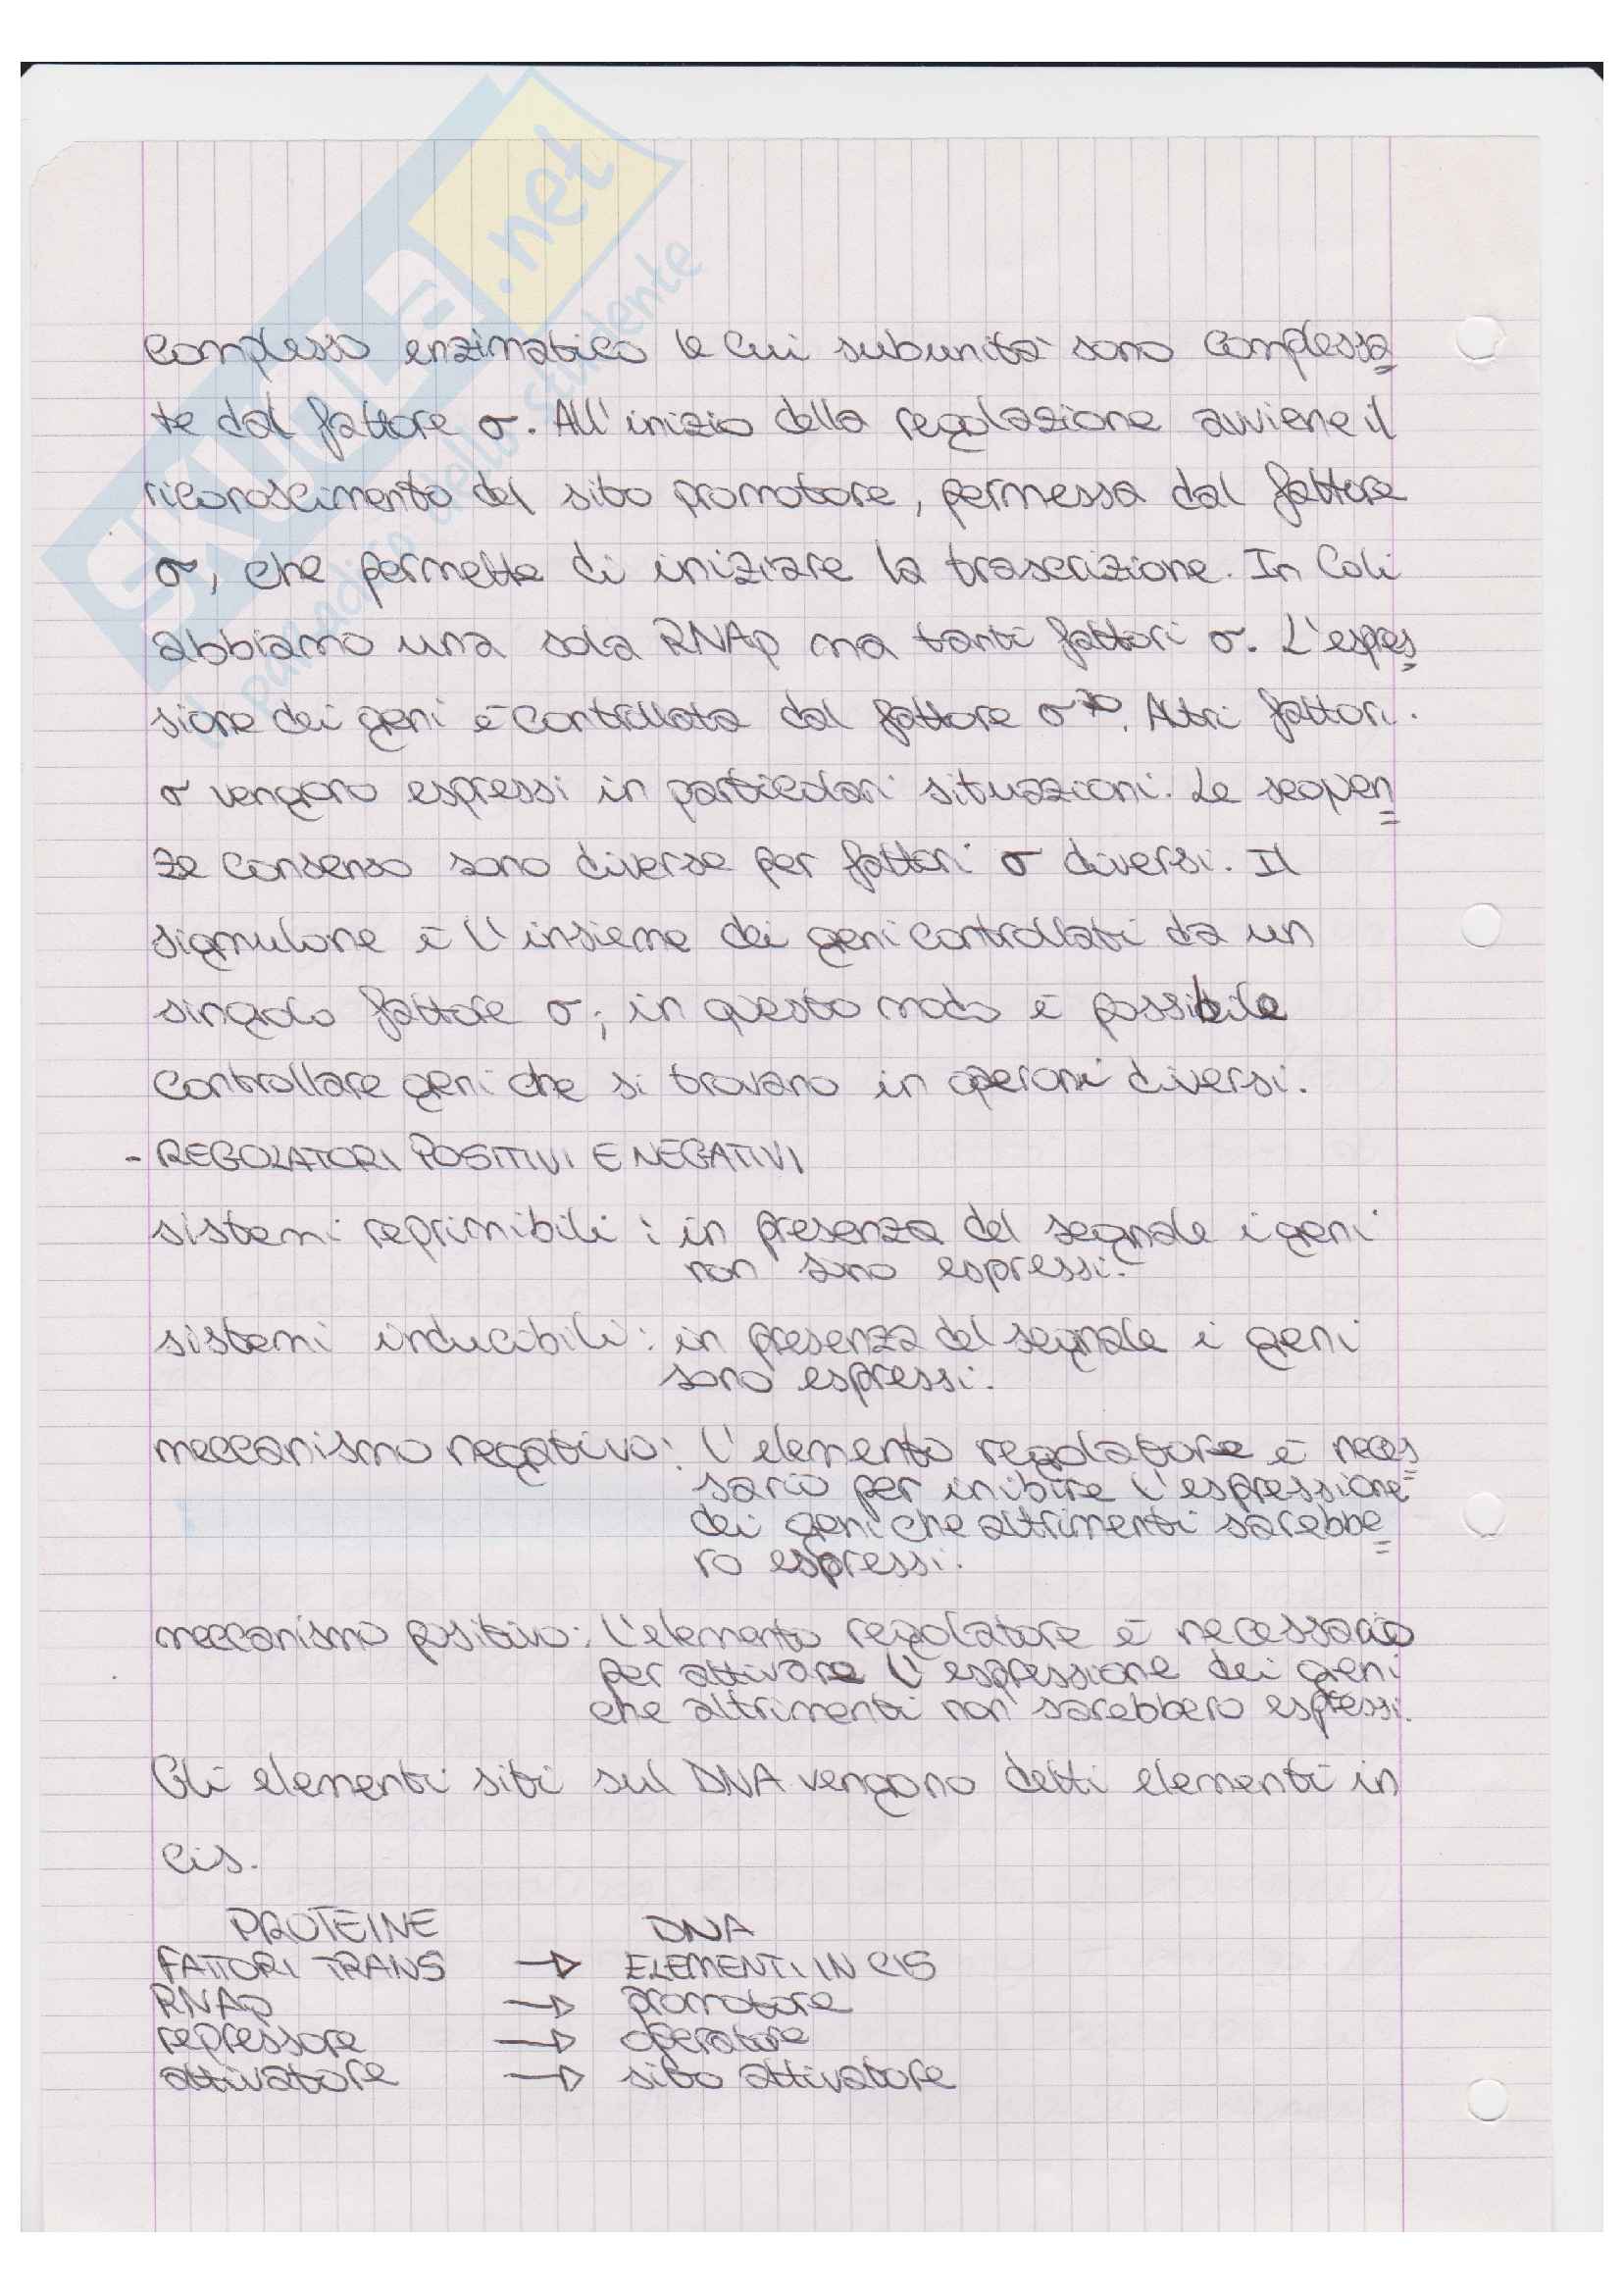 SKUOLA.net
il paradiso dello studente
complesso enzimatico le cui subunità sono complessa
te dal fattore σ. All'inizio della regolazione avviene il
riconoscimento del sito promotore, permessa dal fattore
σ, che permette di iniziare la trascrizione. In Coli
abbiamo una sola RNAp ma tanti fattori σ. L'espres
sione dei geni è controllata dal fattore σ⁷⁰. Altri fattori
σ vengono espressi in particolari situazioni. Le sequen
ze consenso sono diverse per fattori σ diversi. Il
sigmulone è l'insieme dei geni controllati da un
singolo fattore σ; in questo modo è possibile
controllare geni che si trovano in operoni diversi.
- REGOLATORI POSITIVI E NEGATIVI
sistemi reprimibili: in presenza del segnale i geni
non sono espressi.
sistemi inducibili: in presenza del segnale i geni
sono espressi.
meccanismo negativo: l'elemento regolatore è neces
sario per inibire l'espressione
dei geni che altrimenti sarebbe
ro espressi.
meccanismo positivo: l'elemento regolatore è necessario
per attivare l'espressione dei geni
che altrimenti non sarebbero espressi.
Gli elementi siti sul DNA vengono detti elementi in
cis.
PROTEINE DNA
FATTORI TRANS → ELEMENTI IN CIS
RNAp → promotore
repressore → operatore
attivatore → sito attivatore